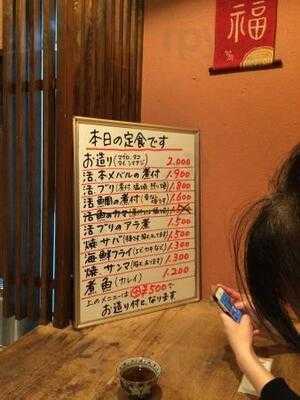 福
本日の定食です
お造り(マグロ、タコ タイ、シメアジ) 2.000
活.本メバルの煮付 1.900
活.ブリ(煮付 塩焼 照り焼) 1.800
活鯛の煮付 1.600
活魚のカマ
活ブリのアラ煮 1.500
焼サバ 1.500
海鮮フライ(エビ カキなど) 1.300
焼サンマ 1.300
煮魚(カレイ) 1.200
上のメニューは ¥500で
お造り付になります